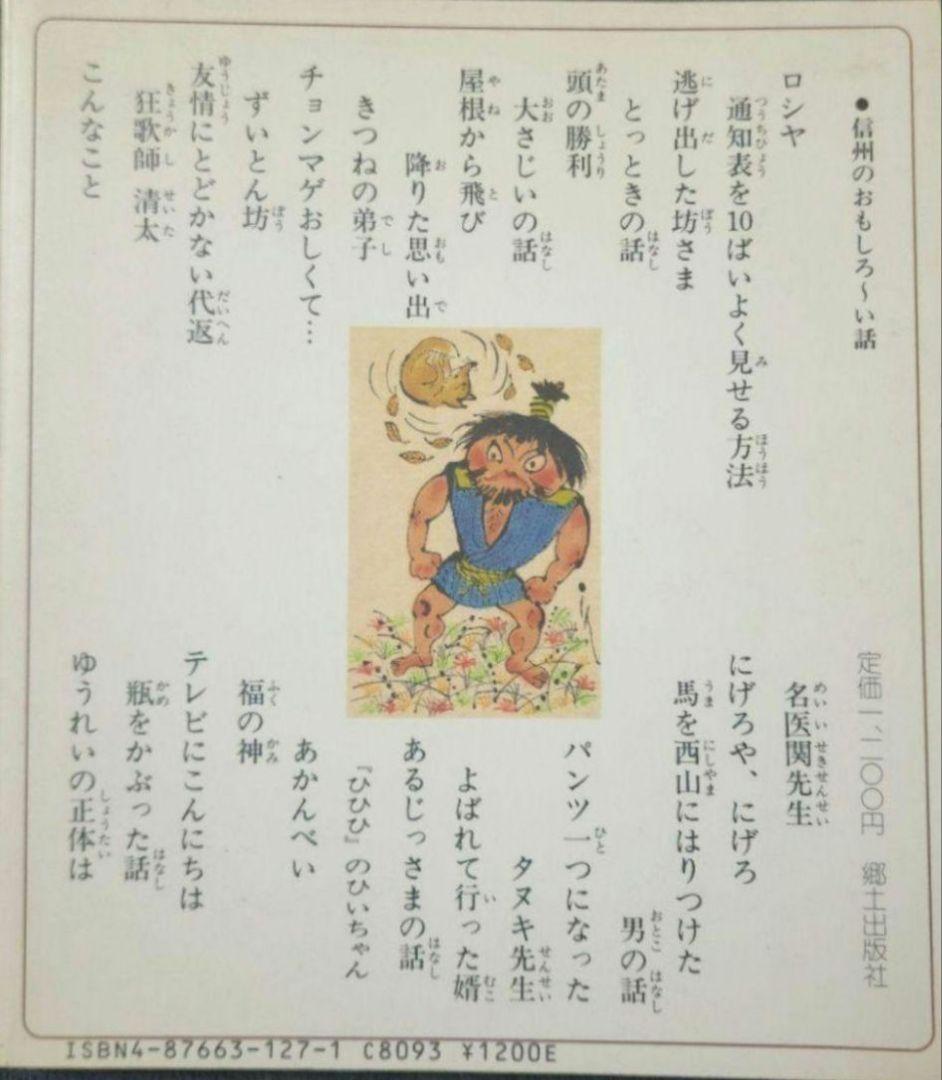 ●信州のおもしろ～い話
ロシヤ
通知表を10ばいよく見せる方法
逃げ出した坊さま
とっときの話
頭の勝利
大さじいの話
屋根から飛び
降りた思い出
きつねの弟子
チョンマゲおしくて…
ずいとん坊
友情にとどかない代返
狂歌師 清太
こんなこと
定価一、二〇〇円 郷土出版社
名医関先生
にげろや、にげろ
馬を西山にはりつけた
男の話
パンツ一つになった
タヌキ先生
よばれて行った婿
あるじっさまの話
『ひひひ』のひいちゃん
あかんべい
福の神
テレビにこんにちは
瓶をかぶった話
ゆうれいの正体は
ISBN4-87663-127-1 C8093 ¥1200E